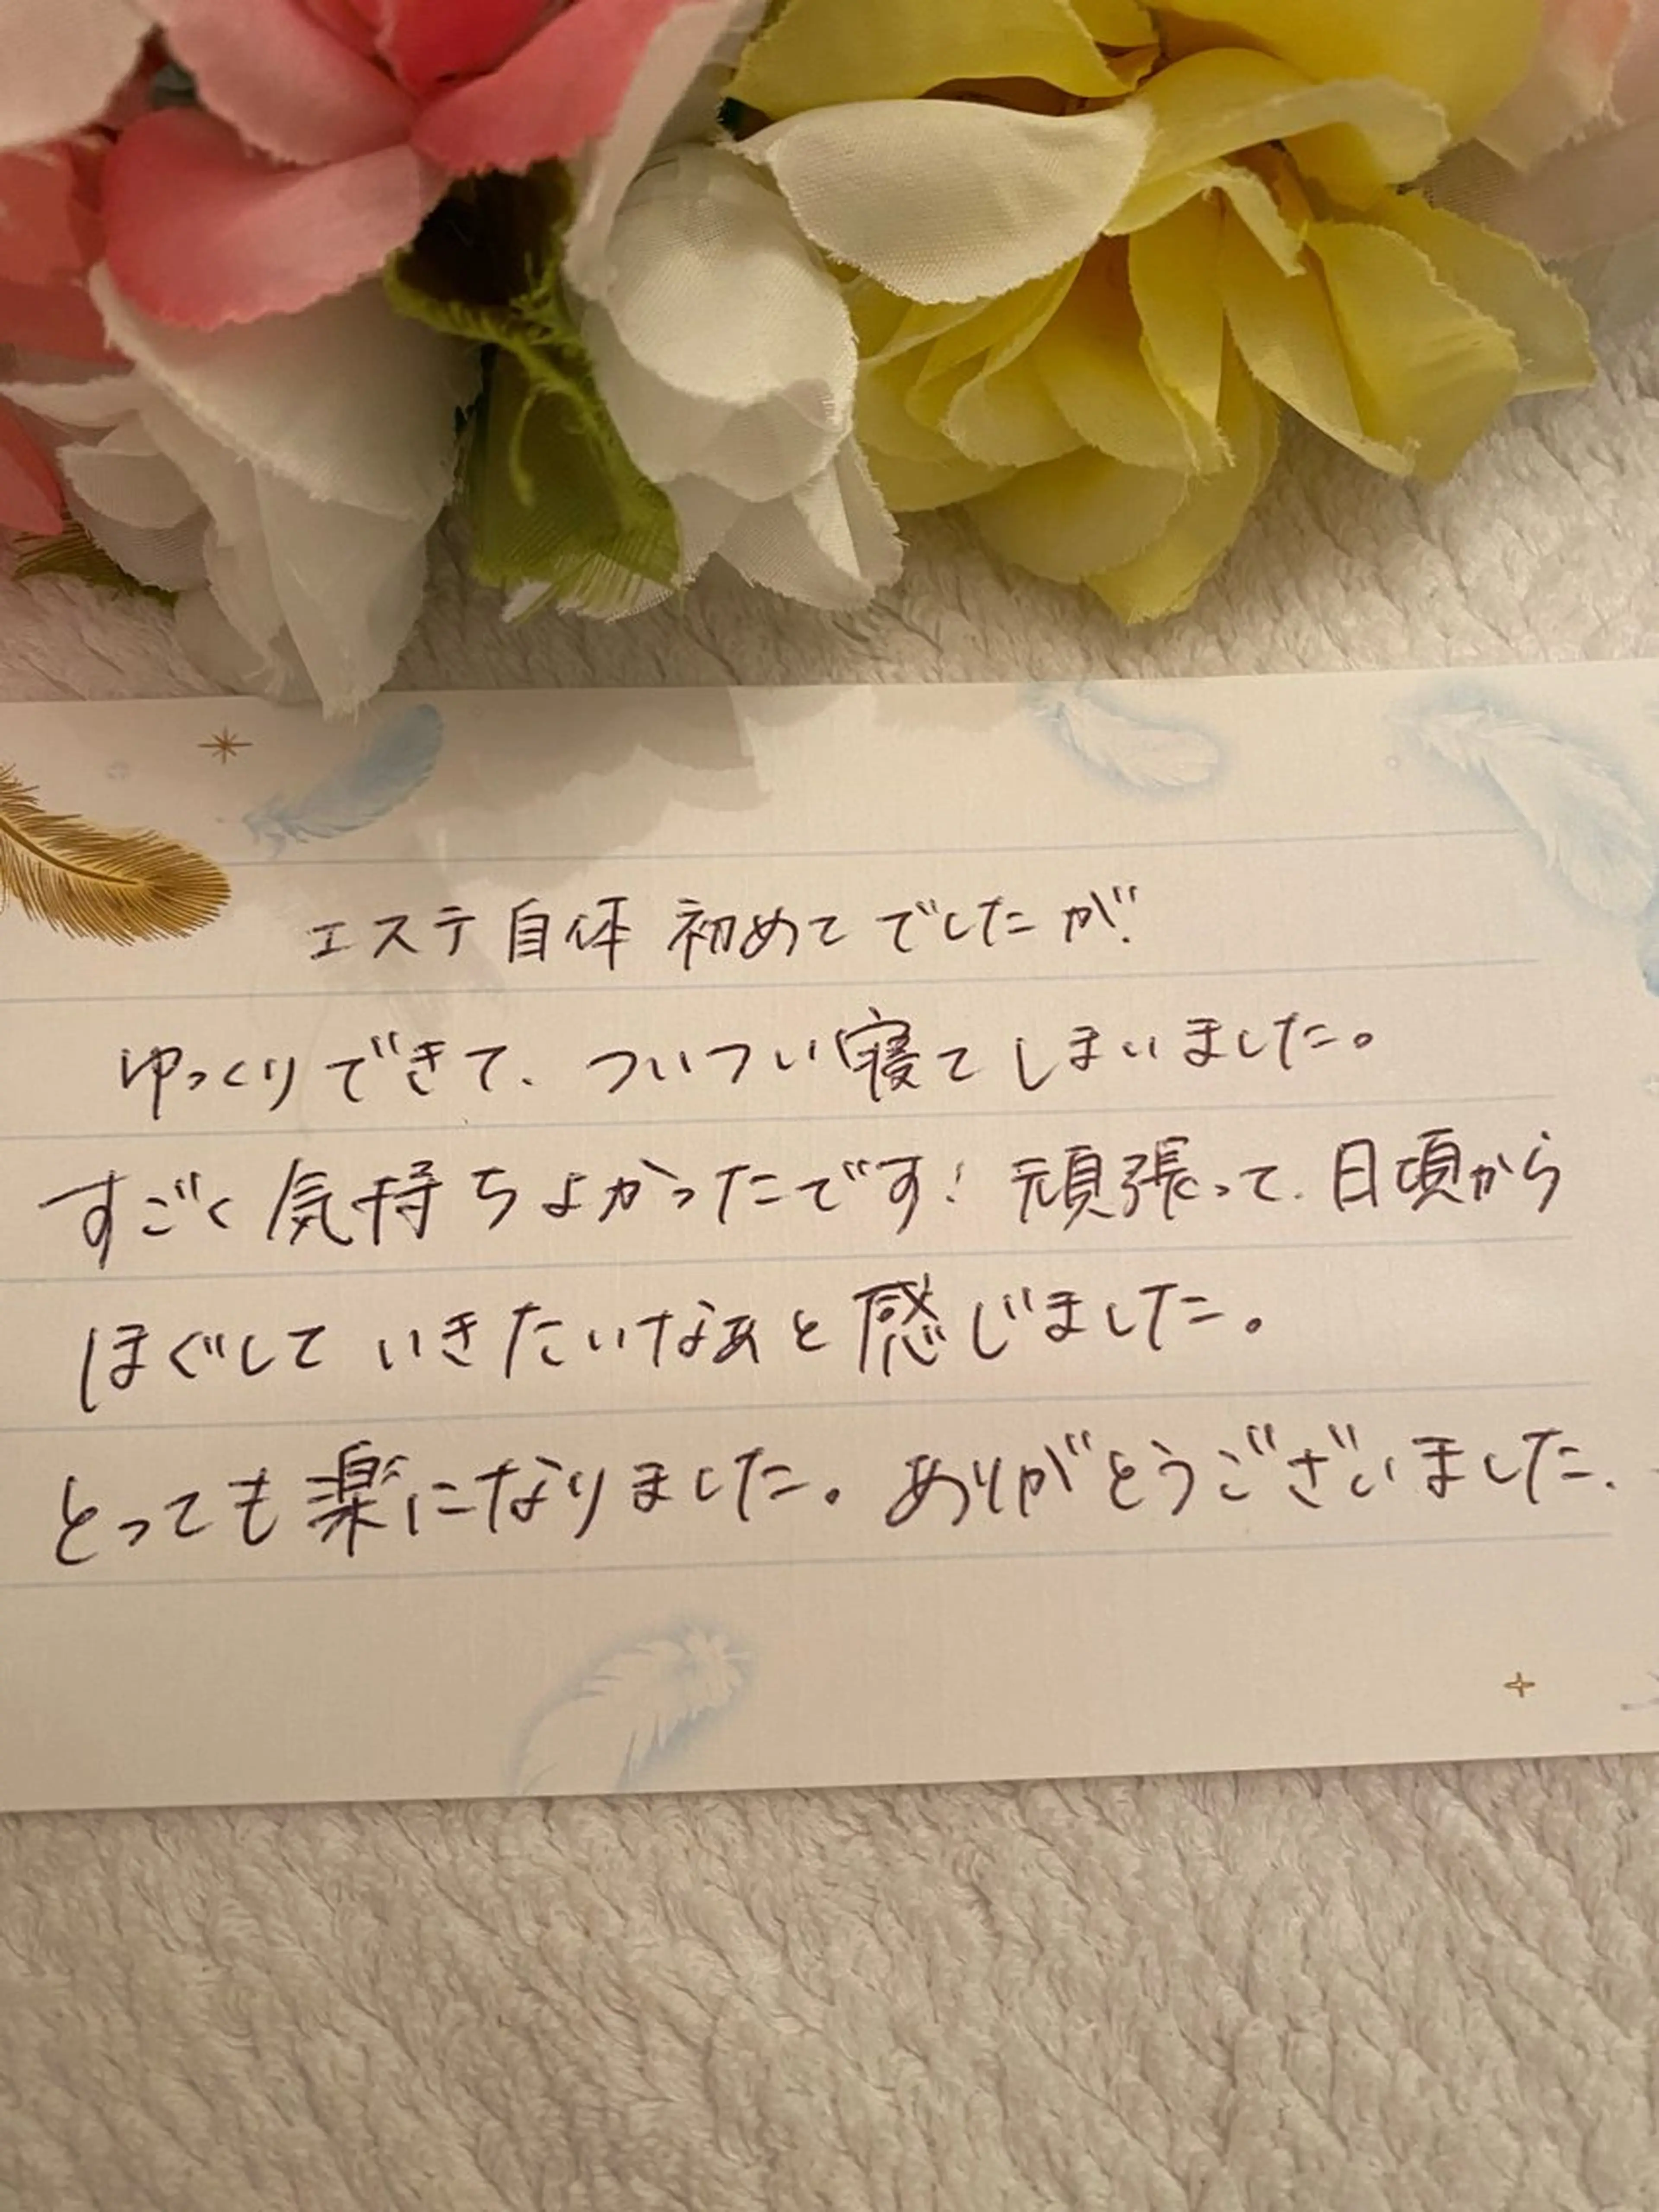 エステ自体初めてでしたが、
ゆっくりできて、ついつい寝てしまいました。
すごく気持ちよかったです！頑張って、日頃から
ほぐしていきたいなぁと感じました。
とっても楽になりました。ありがとうございました.